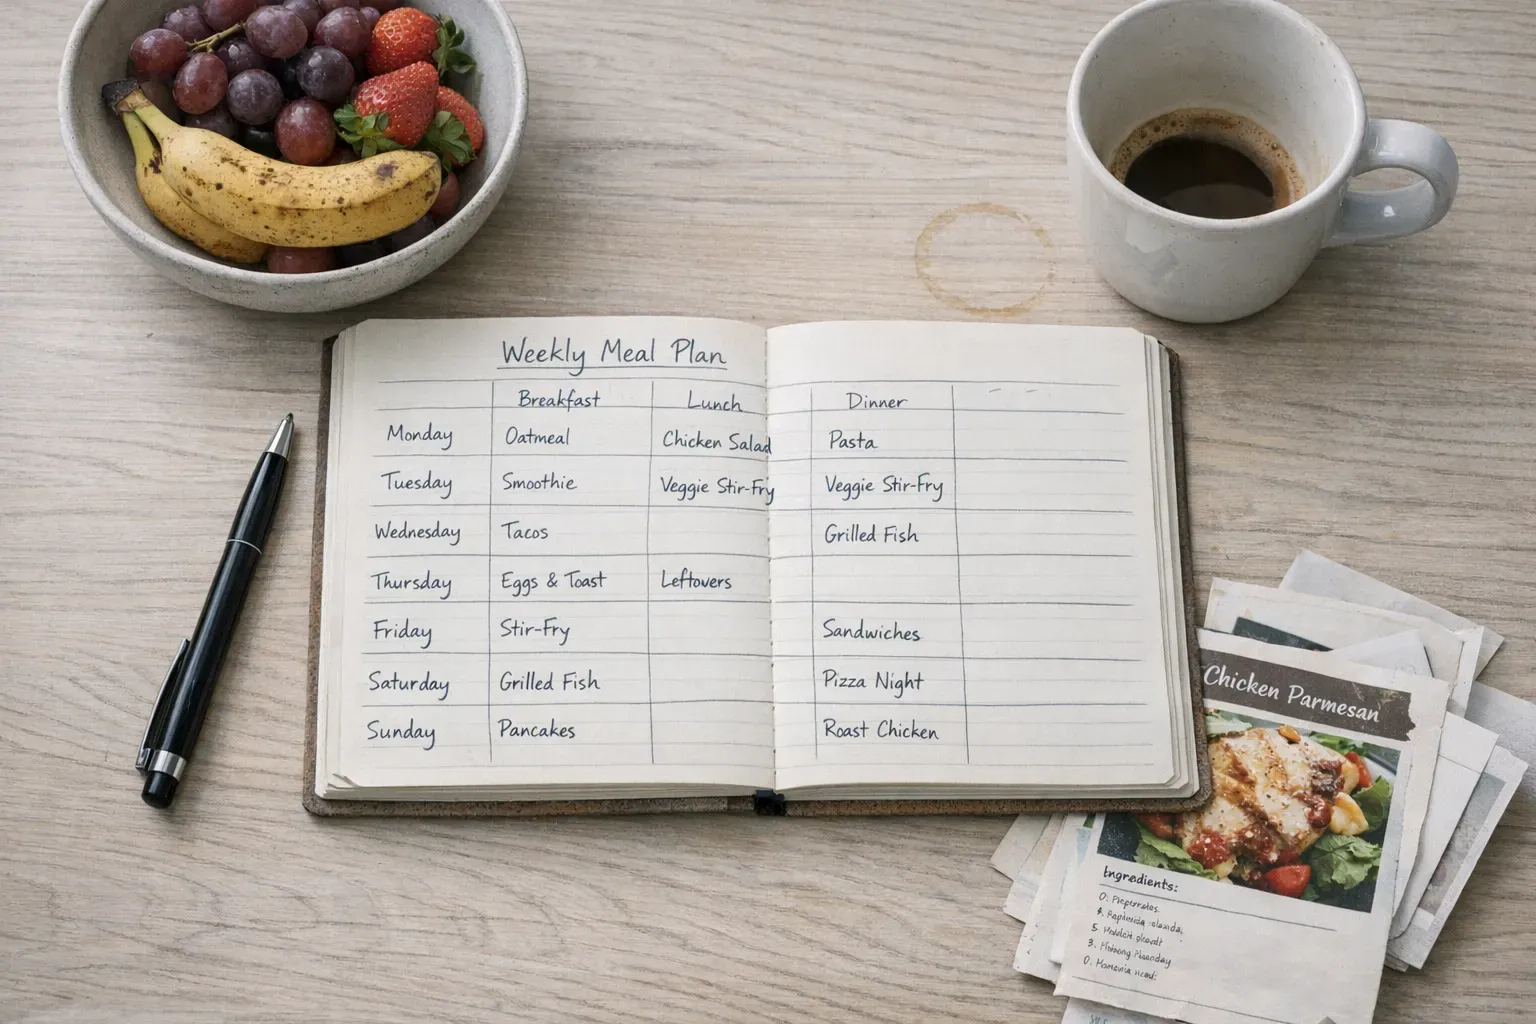 Weekly Meal Plan
Breakfast Lunch Dinner
Monday Oatmeal Chicken Salad Pasta
Tuesday Smoothie Veggie Stir-Fry Veggie Stir-Fry
Wednesday Tacos Grilled Fish
Thursday Eggs & Toast Leftovers
Friday Stir-Fry Sandwiches
Saturday Grilled Fish Pizza Night
Sunday Pancakes Roast Chicken
Chicken Parmesan
Ingredients: